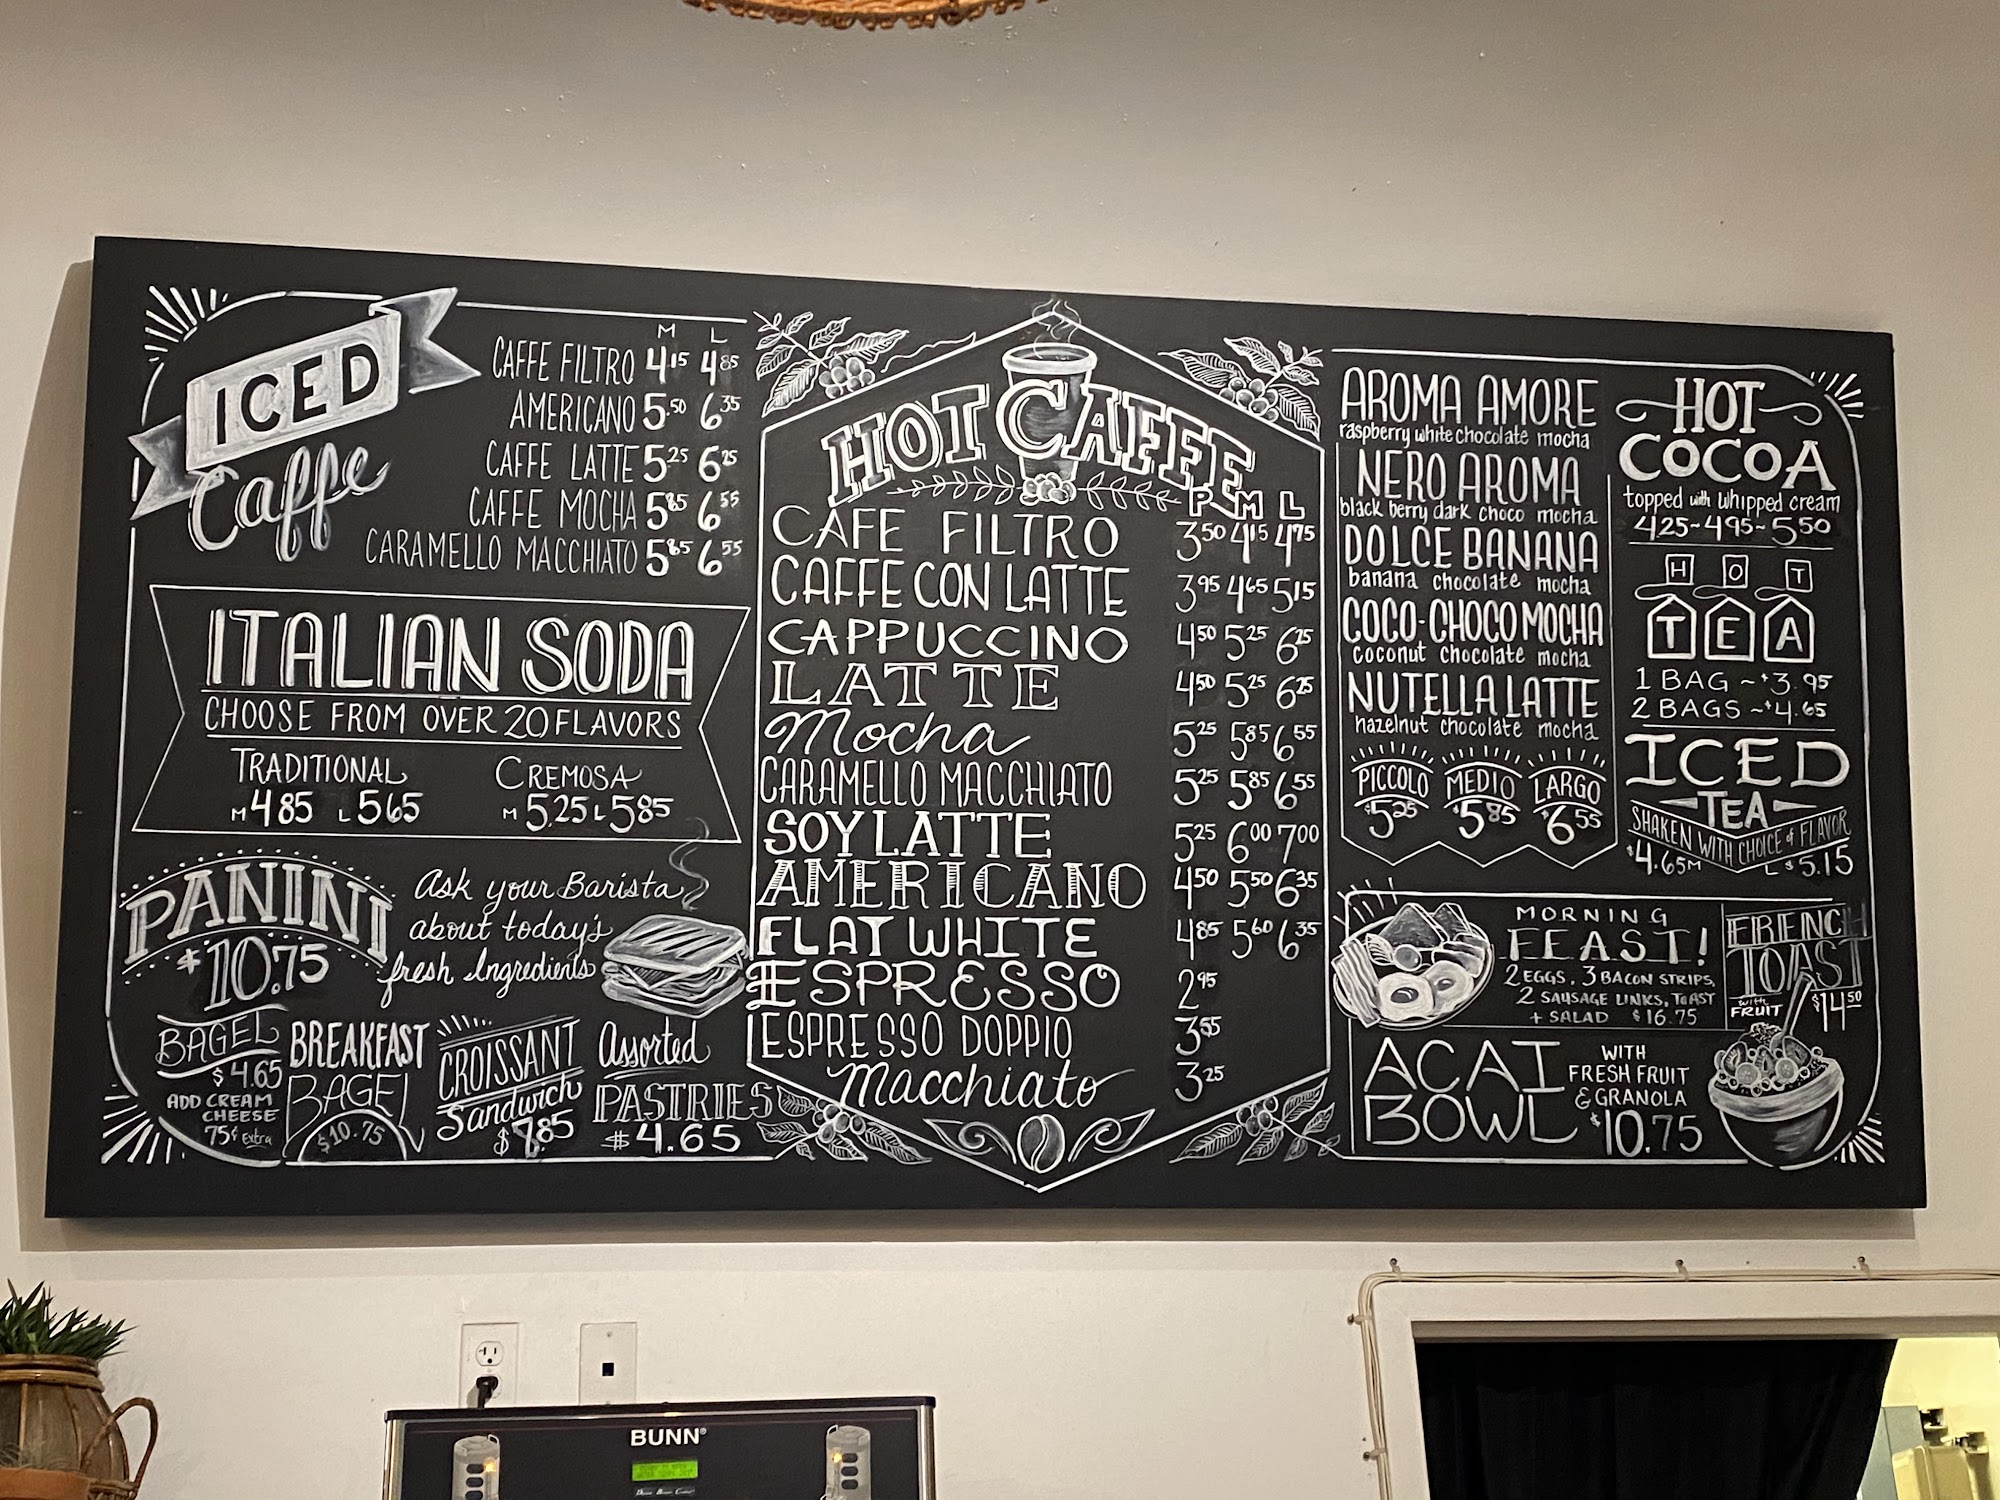 ICED
Caffe
M L
CAFFE FILTRO 4.15 4.85
AMERICANO 5.50 6.35
CAFFE LATTE 5.25 6.25
CAFFE MOCHA 5.85 6.55
CARAMELLO MACCHIATO 5.85 6.55
ITALIAN SODA
CHOOSE FROM OVER 20 FLAVORS
TRADITIONAL
M 4.85 L 5.65
CREMOSA
M 5.25 L 5.85
PANINI
$10.75
Ask your Barista
about today's
fresh Ingredients
BAGEL
$4.65
ADD CREAM
CHEESE
75¢ Extra
BREAKFAST
BAGEL
$10.75
CROISSANT
Sandwich
$7.85
Assorted
PASTRIES
$4.65
HOT CAFFE
P M L
CAFE FILTRO 3.50 4.15 4.75
CAFFE CON LATTE 3.95 4.65 5.15
CAPPUCCINO 4.50 5.25 6.25
LATTE 4.50 5.25 6.25
Mocha 5.25 5.85 6.55
CARAMELLO MACCHIATO 5.25 5.85 6.55
SOY LATTE 5.25 6.00 7.00
AMERICANO 4.50 5.50 6.35
FLAT WHITE 4.85 5.60 6.35
ESPRESSO 2.95
ESPRESSO DOPPIO 3.55
Macchiato 3.25
AROMA AMORE
raspberry white chocolate mocha
NERO AROMA
black berry dark choco mocha
DOLCE BANANA
banana chocolate mocha
COCO-CHOCO MOCHA
coconut chocolate mocha
NUTELLA LATTE
hazelnut chocolate mocha
PICCOLO MEDIO LARGO
$5.25 $5.85 $6.55
HOT
COCOA
topped with whipped cream
4.25~4.95~5.50
HOT
TEA
1 BAG ~ $3.95
2 BAGS ~ $4.65
ICED
TEA
SHAKEN WITH CHOICE of FLAVOR
$4.65 M L $5.15
MORNING
FEAST!
2 EGGS, 3 BACON STRIPS,
2 SAUSAGE LINKS, TOAST
+ SALAD $16.75
FRENCH
TOAST
with
FRUIT
$14.50
ACAI
BOWL
WITH
FRESH FRUIT
& GRANOLA
$10.75
BUNN®